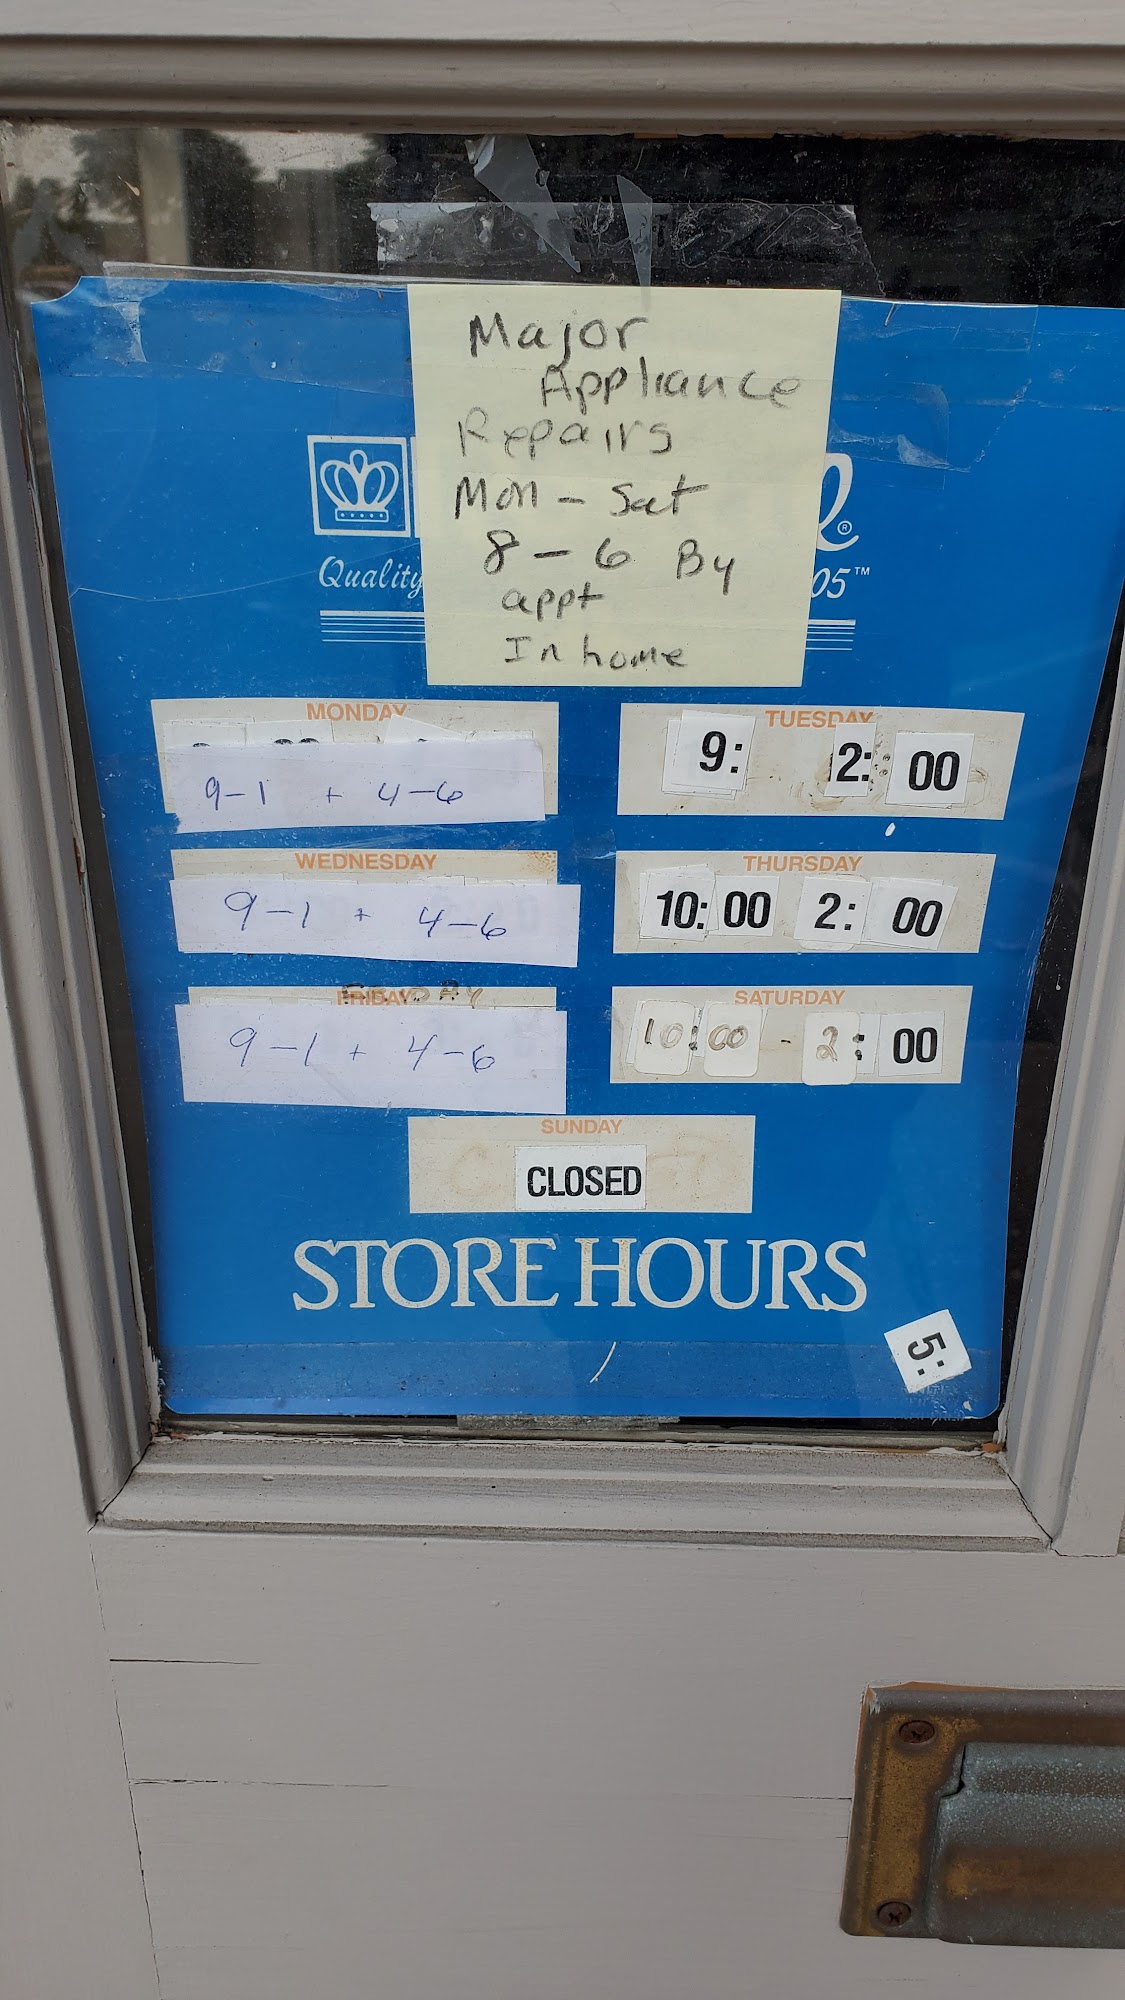 Major
Appliance
Repairs
Mon - Sat
8 - 6 By
appt
In home
Quality
05™
MONDAY
9-1 + 4-6
TUESDAY
9: 2: 00
WEDNESDAY
9-1 + 4-6
THURSDAY
10:00 2:00
FRIDAY
9-1 + 4-6
SATURDAY
10:00 - 2:00
SUNDAY
CLOSED
STORE HOURS
5: